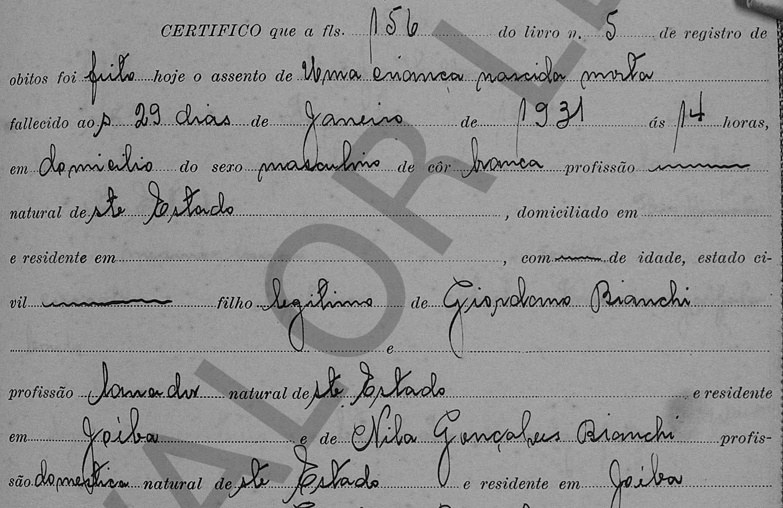 CERTIFICO que a fls. 156 do livro n. 5 de registro de
obitos foi feito hoje o assento de Uma criança nascida morta
fallecido aos 29 dias de Janeiro de 1931 ás 14 horas,
em domicilio do sexo masculino de côr branca profissão
natural deste Estado , domiciliado em
e residente em , com de idade, estado ci-
vil filho legitimo de Giordano Bianchi
e
profissão lavrador natural deste Estado e residente
em Joíba e de Nila Gonçalves Bianchi profis-
são domestica natural deste Estado e residente em Joíba
VALOR LE